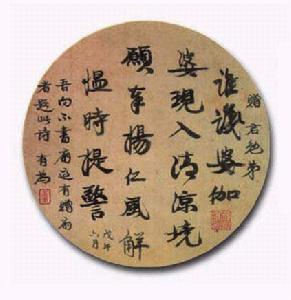 贈 君勉弟
誰識婆伽
婆現入清涼境
願奉揚仁風解
慍時提警
六月
吾向不書扇近有贈扇
者題此詩 有為